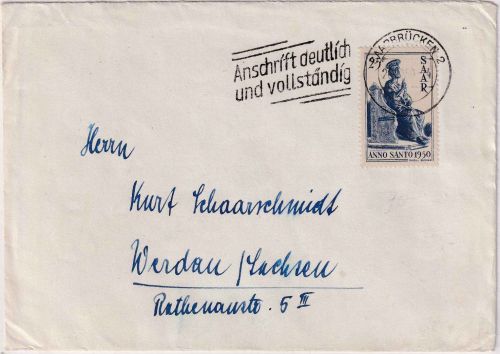 Anschrift deutlich
und vollständig
SAARBRÜCKEN 2
SAAR
ANNO SANTO 1950
Herrn
Kurt Schaarschmidt
Werdau/Sachsen
Rathenaustr. 5 III